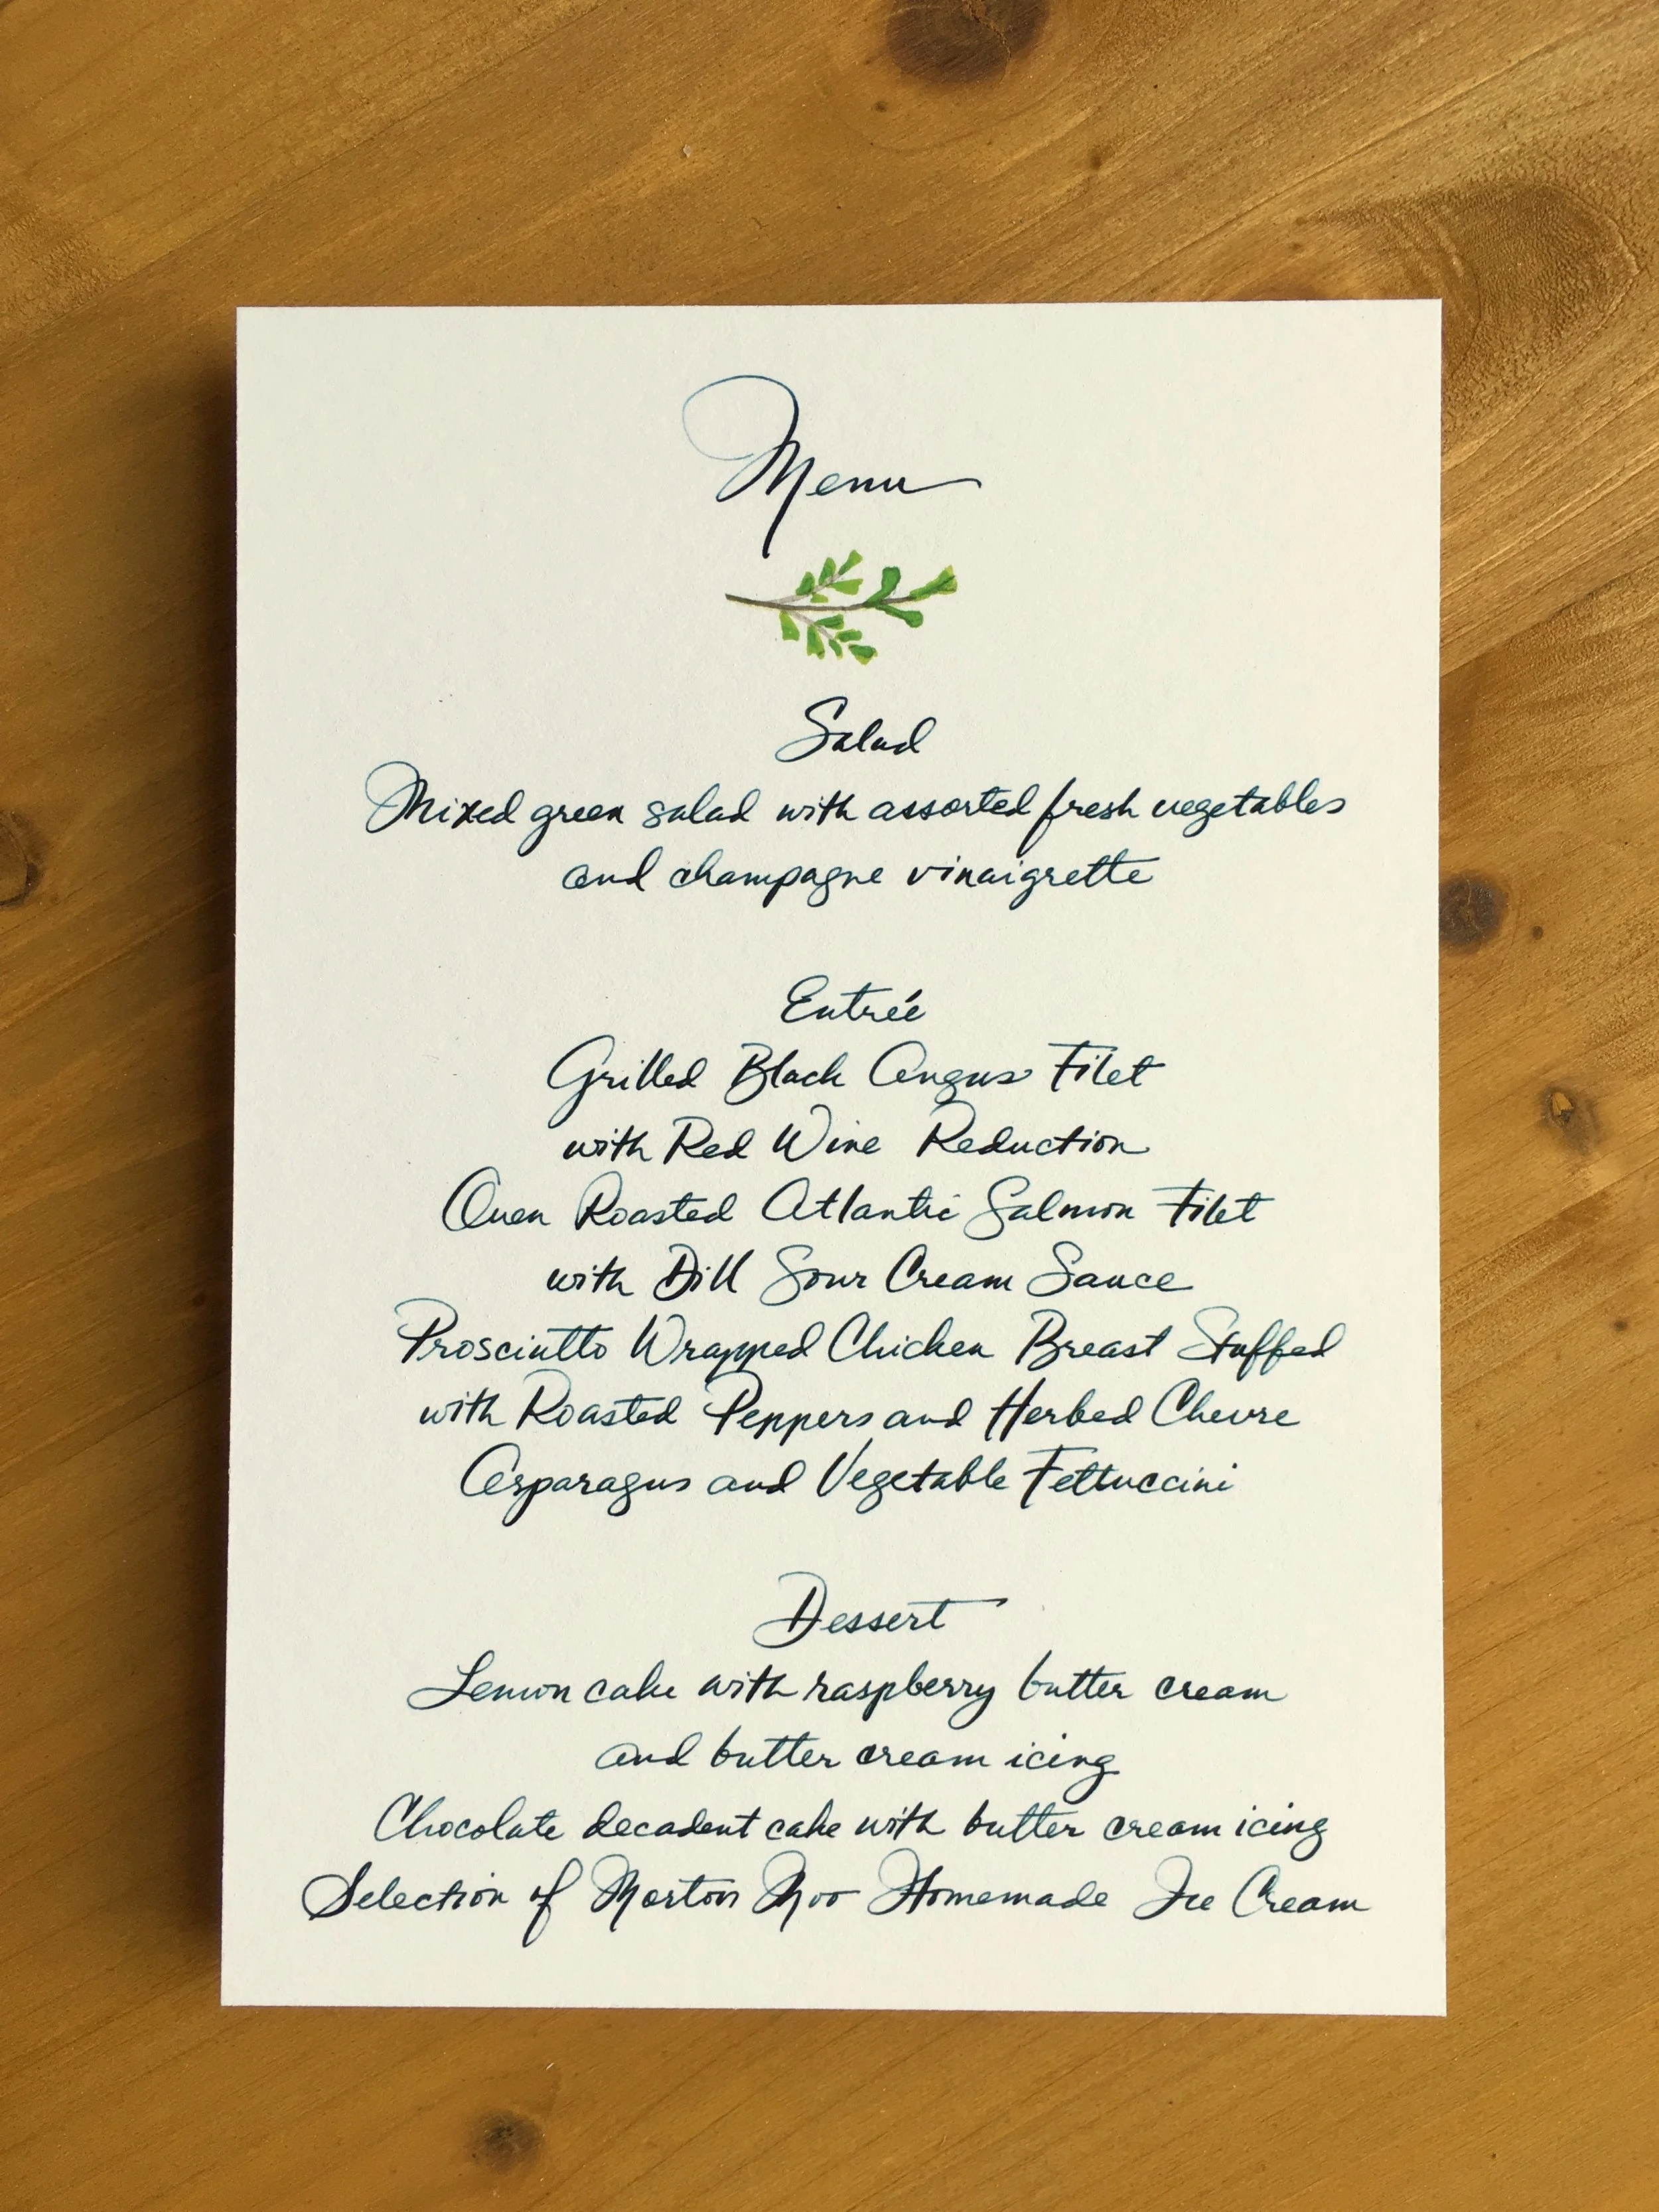 Menu
Salad
Mixed green salad with assorted fresh vegetables
and champagne vinaigrette
Entrée
Grilled Black Angus Filet
with Red Wine Reduction
Oven Roasted Atlantic Salmon Filet
with Dill Sour Cream Sauce
Prosciutto Wrapped Chicken Breast Stuffed
with Roasted Peppers and Herbed Chevre
Asparagus and Vegetable Fettuccini
Dessert
Lemon cake with raspberry butter cream
and butter cream icing
Chocolate decadent cake with butter cream icing
Selection of Morton Moo Homemade Ice Cream